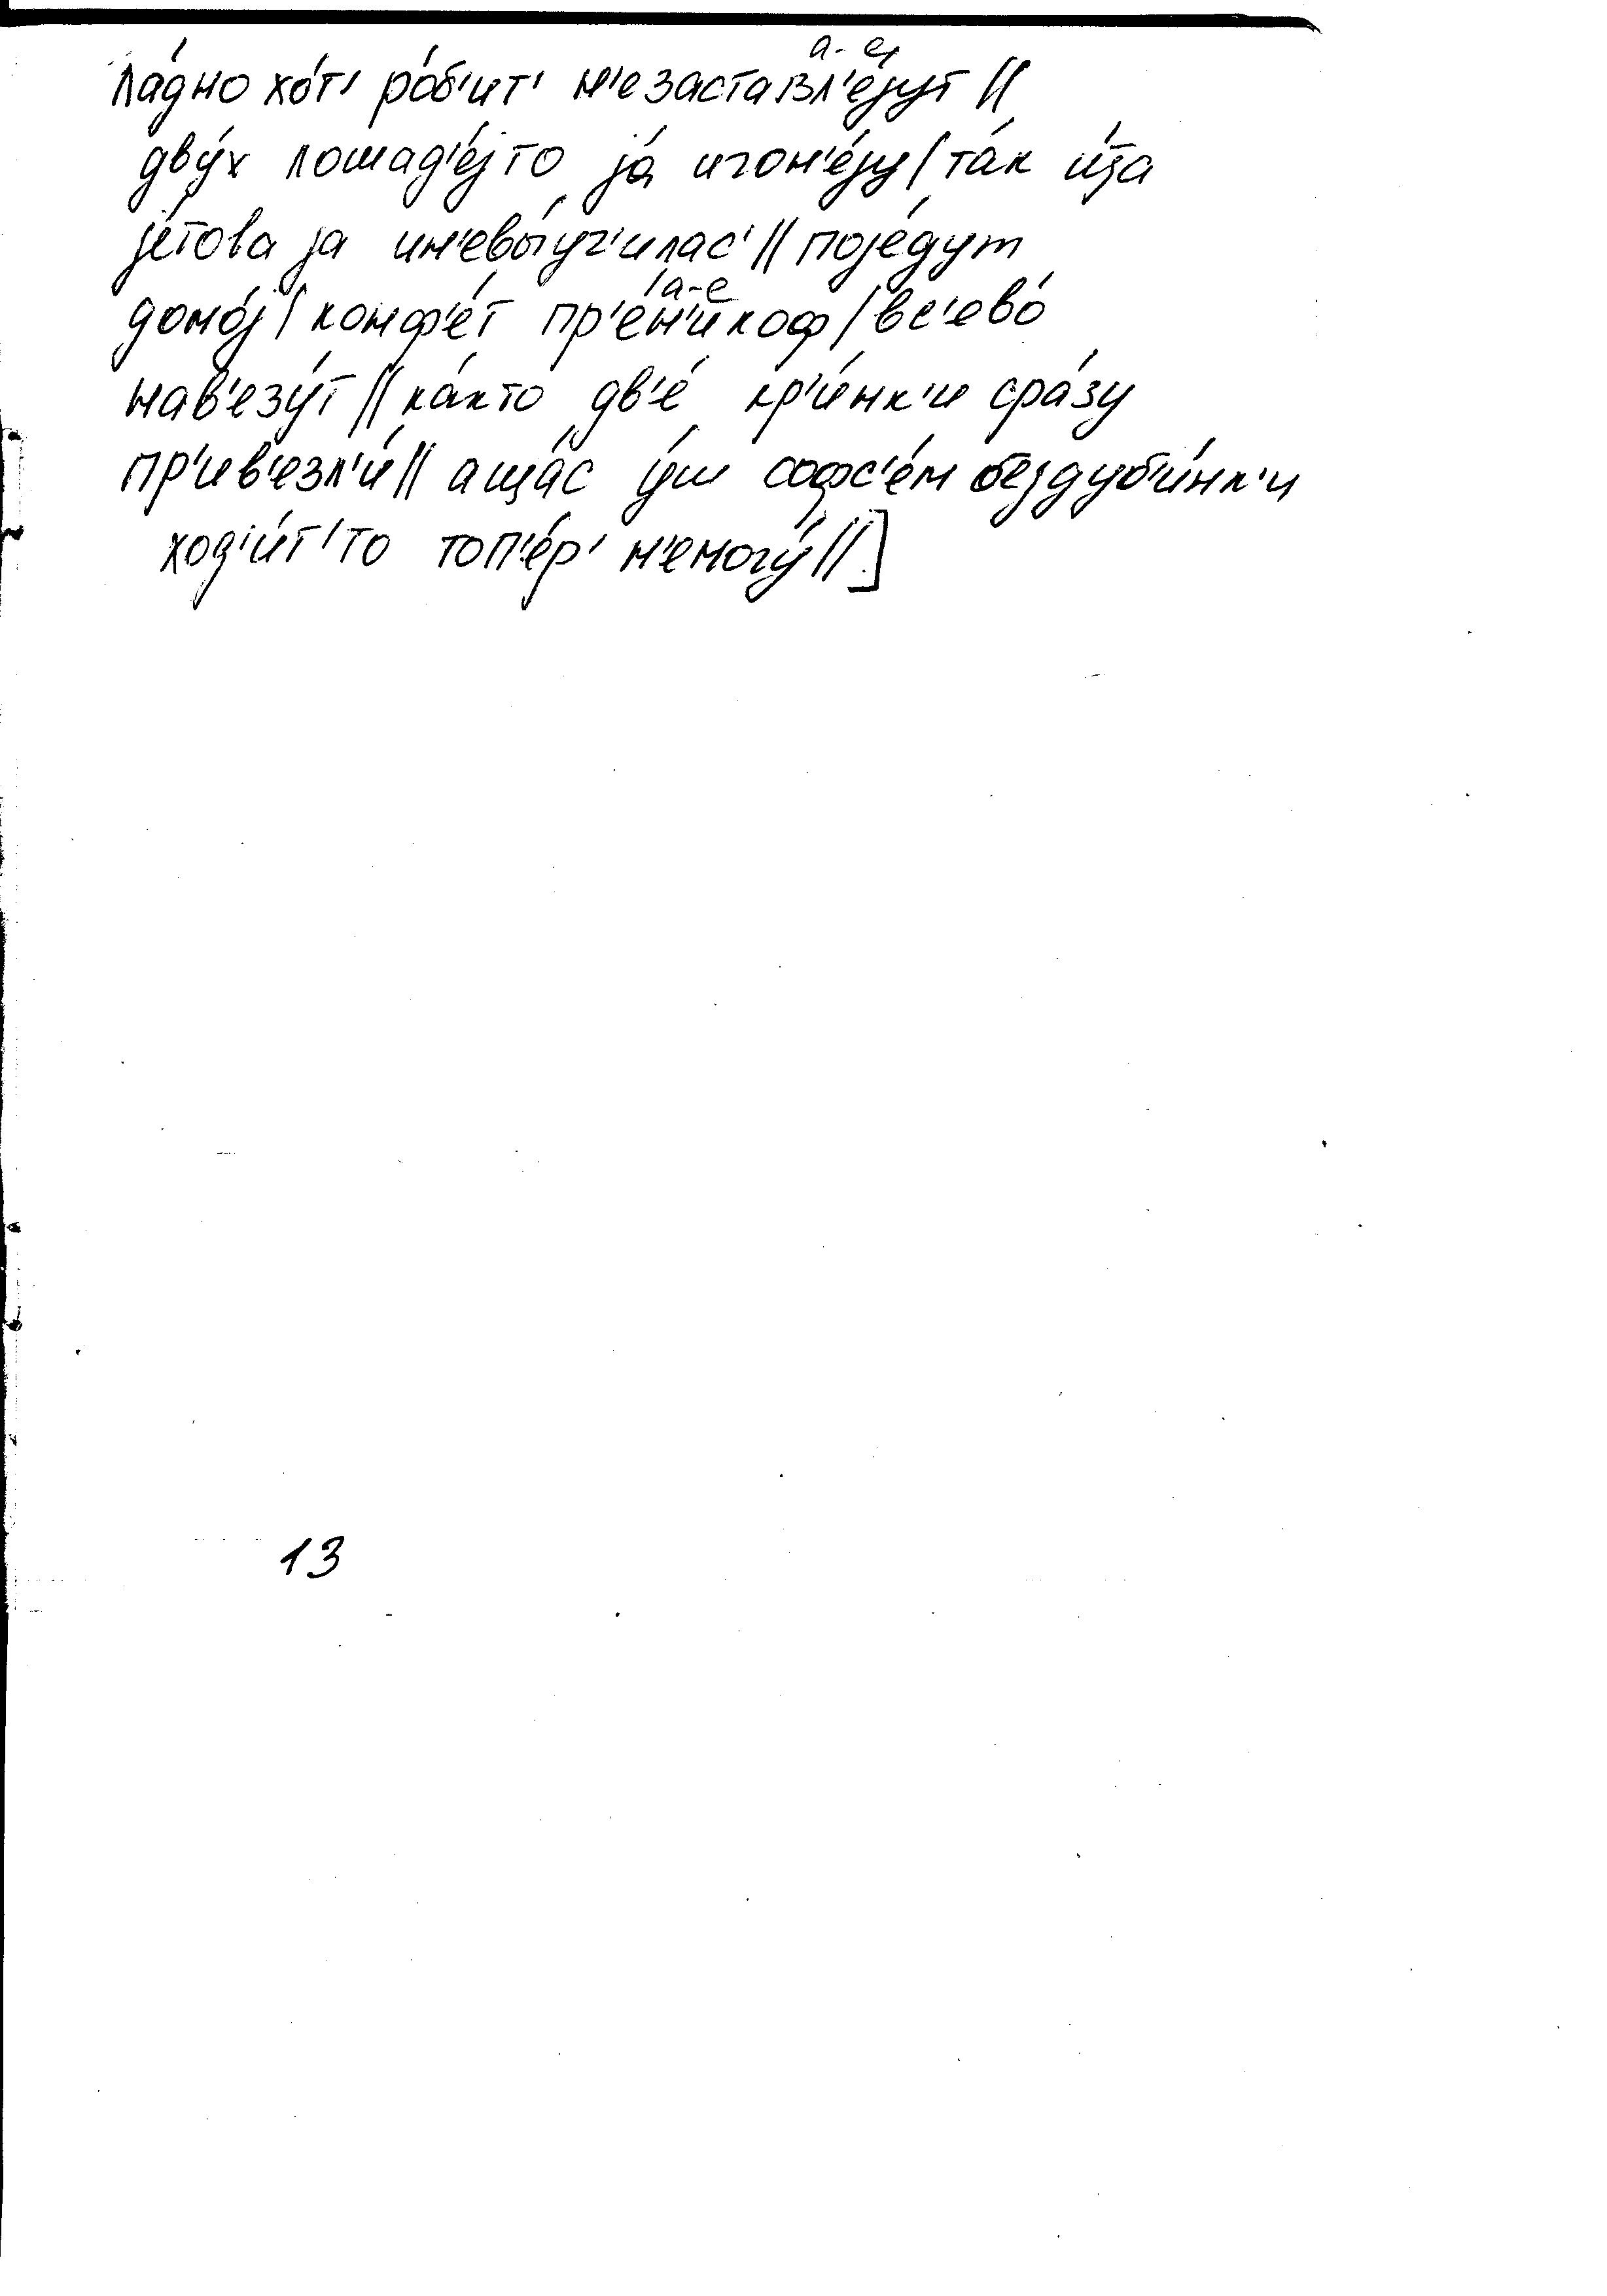 а- е
ла́дно хо́т' ро́б'ит' н'езаставл'е́јут ||
дву́х лошад'е́јто ја́ игон'е́ју | та́к и́за
је́това ја ин'евы́уч'илас' || поје́дут
домо́ј | конф'е́т пр'е́н'икоф | вс'ево́
а-е
нав'езу́т || ка́кто дв'е́ кр'и́нк'и сра́зу
пр'ив'езл'и́ || аща́с у́ш софс'е́м бездуб'и́нк'и
ход'и́т'то топ'е́р' н'емогу́ || ]
13